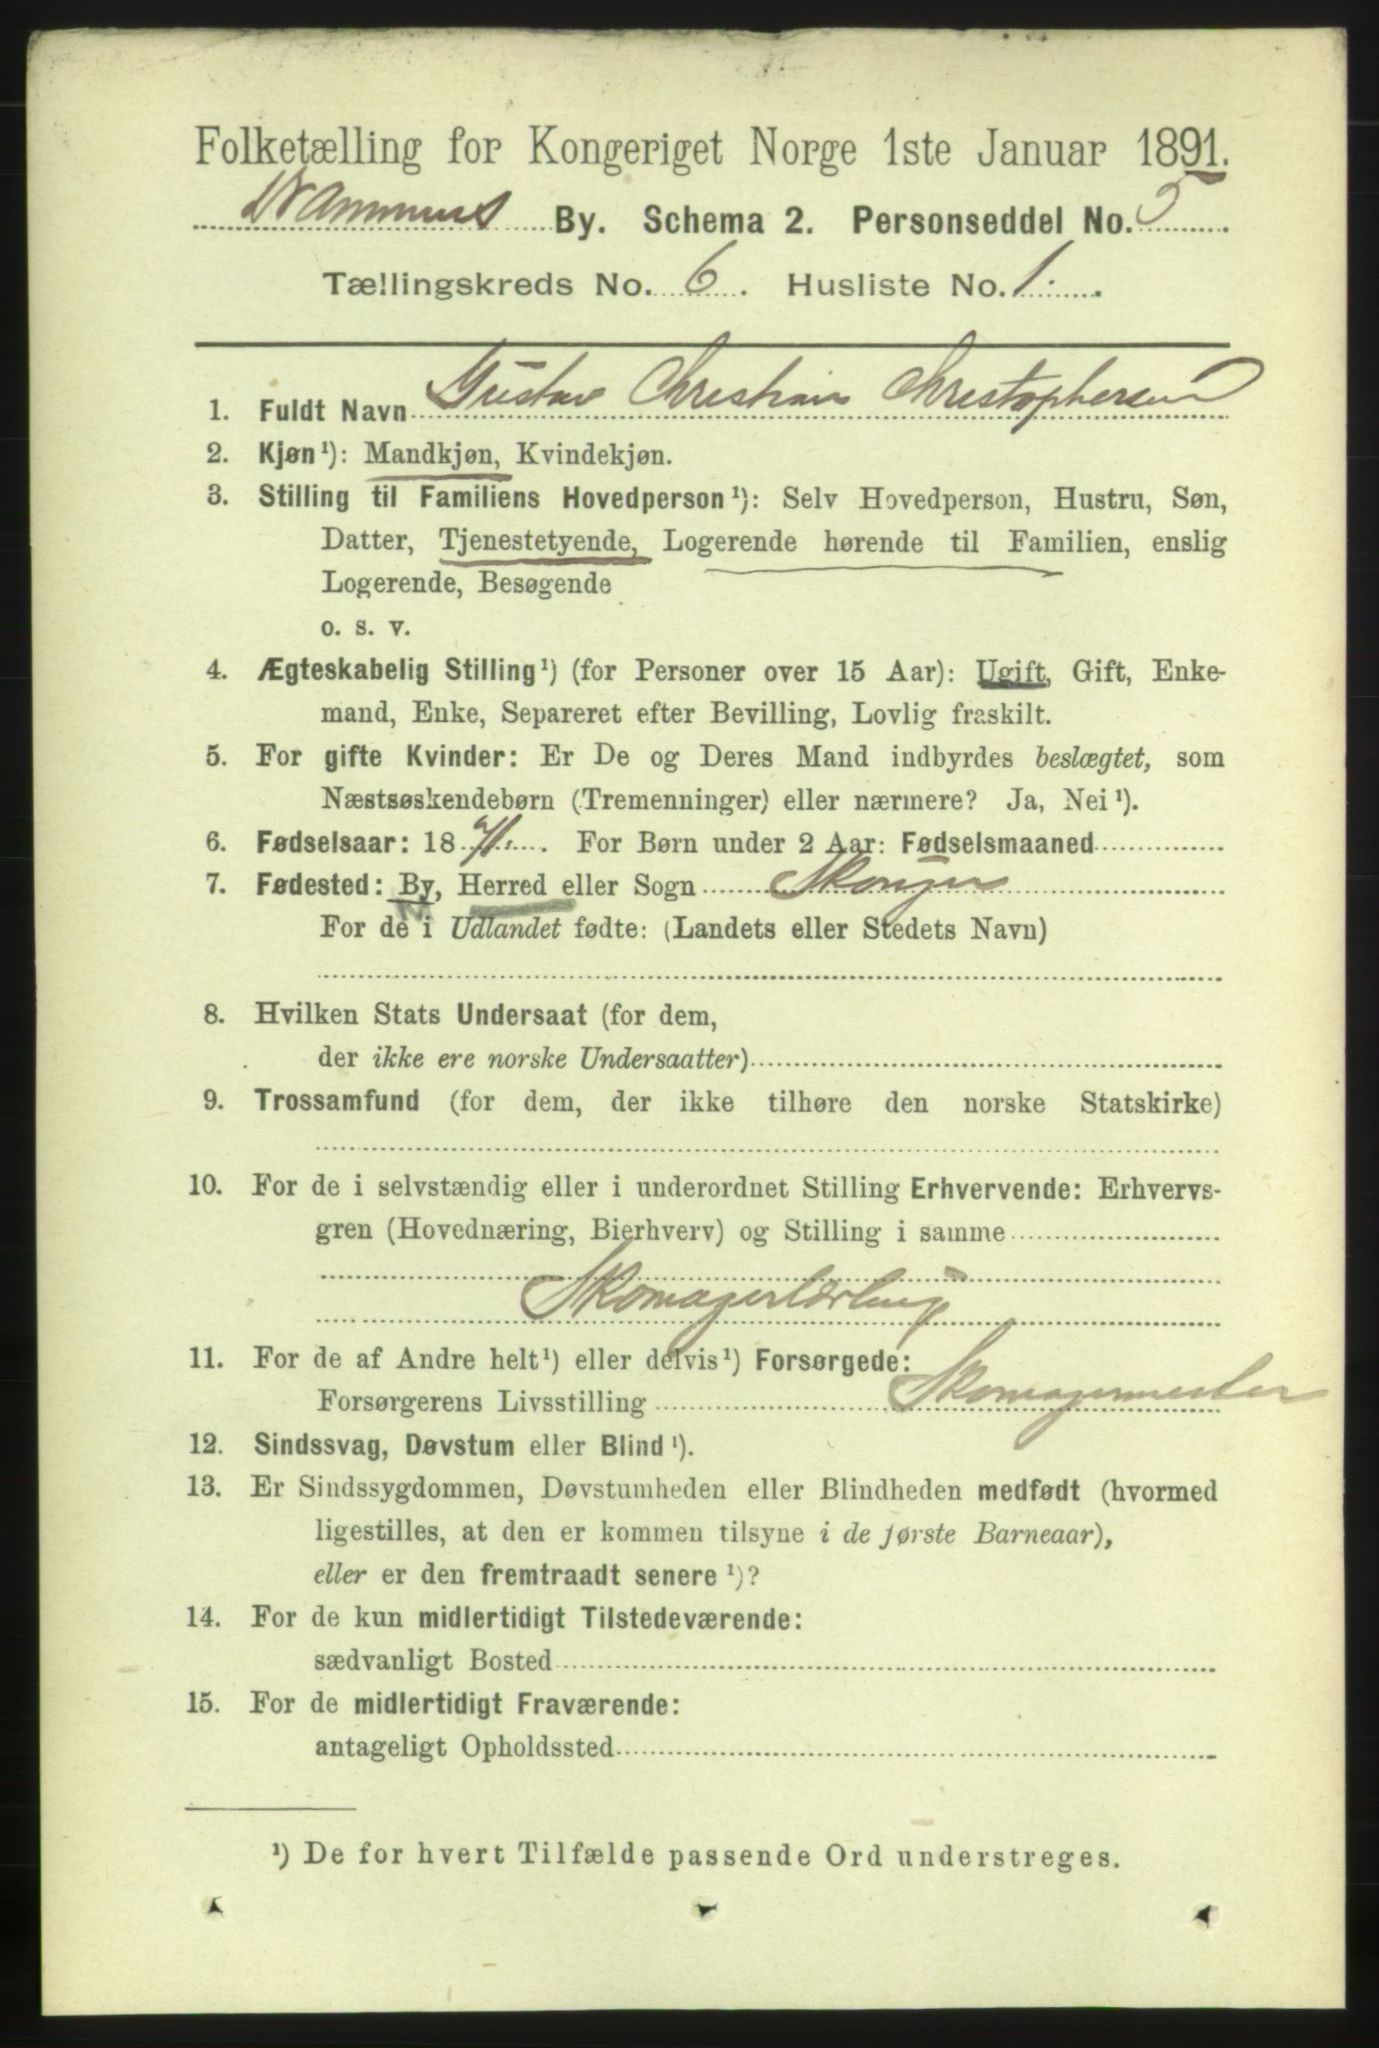 Folketælling for Kongeriget Norge 1ste Januar 1891.
Drammens By. Schema 2. Personseddel No. 5
Tællingskreds No. 6. Husliste No. 1.
1. Fuldt Navn Gustav Christian Christophersen
2. Kjøn ¹): Mandkjøn, Kvindekjøn.
3. Stilling til Familiens Hovedperson ¹): Selv Hovedperson, Hustru, Søn,
Datter, Tjenestetyende, Logerende hørende til Familien, enslig
Logerende, Besøgende
o. s. v.
4. Ægteskabelig Stilling ¹) (for Personer over 15 Aar): Ugift, Gift, Enke-
mand, Enke, Separeret efter Bevilling, Lovlig fraskilt.
5. For gifte Kvinder: Er De og Deres Mand indbyrdes beslægtet, som
Næstsøskendebørn (Tremenninger) eller nærmere? Ja, Nei ¹).
6. Fødselsaar: 1871. For Børn under 2 Aar: Fødselsmaaned
7. Fødested: By, Herred eller Sogn Skouger
For de i Udlandet fødte: (Landets eller Stedets Navn)
8. Hvilken Stats Undersaat (for dem,
der ikke ere norske Undersaatter)
9. Trossamfund (for dem, der ikke tilhøre den norske Statskirke)
10. For de i selvstændig eller i underordnet Stilling Erhvervende: Erhvervs-
gren (Hovednæring, Bierhverv) og Stilling i samme
Skomagerlærling
11. For de af Andre helt ¹) eller delvis ¹) Forsørgede:
Forsørgerens Livsstilling Skomagermester
12. Sindssvag, Døvstum eller Blind ¹).
13. Er Sindssygdommen, Døvstumheden eller Blindheden medfødt (hvormed
ligestilles, at den er kommen tilsyne i de første Barneaar),
eller er den fremtraadt senere ¹)?
14. For de kun midlertidigt Tilstedeværende:
sædvanligt Bosted
15. For de midlertidigt Fraværende:
antageligt Opholdssted
¹) De for hvert Tilfælde passende Ord understreges.